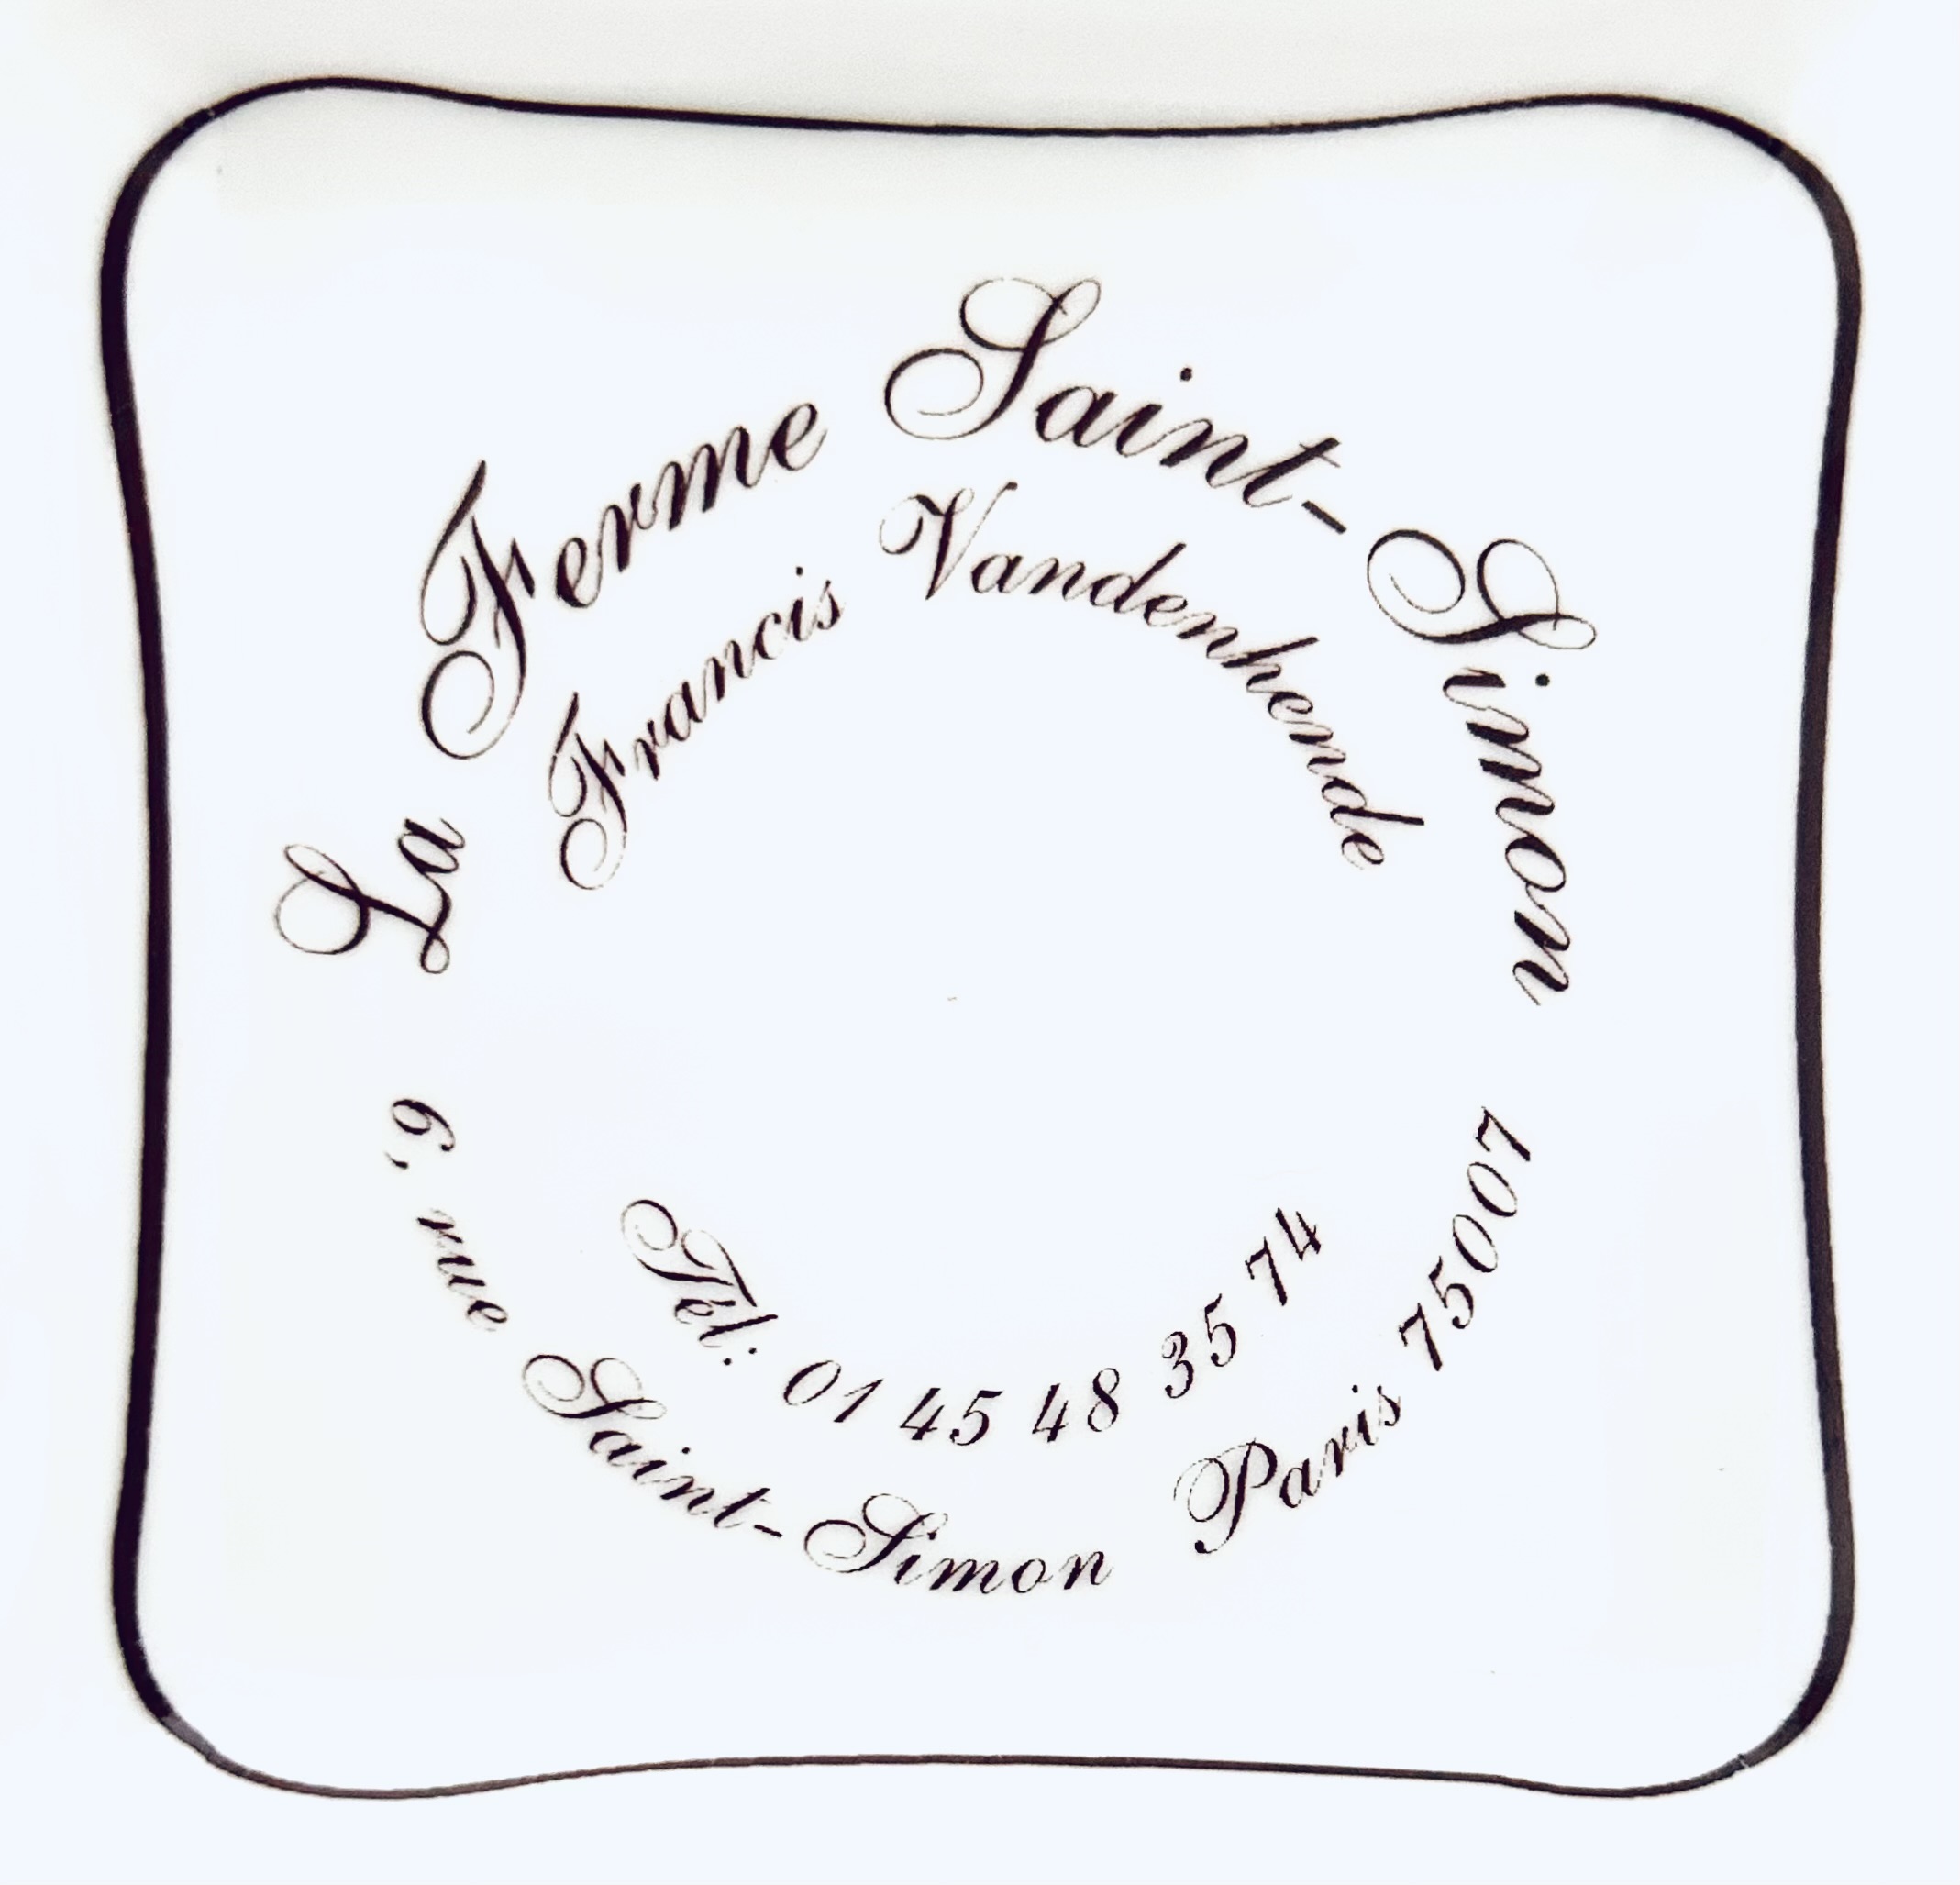 La Ferme Saint-Simon
Francis Vandenhende
Tél: 01 45 48 35 74
6, rue Saint-Simon Paris 75007